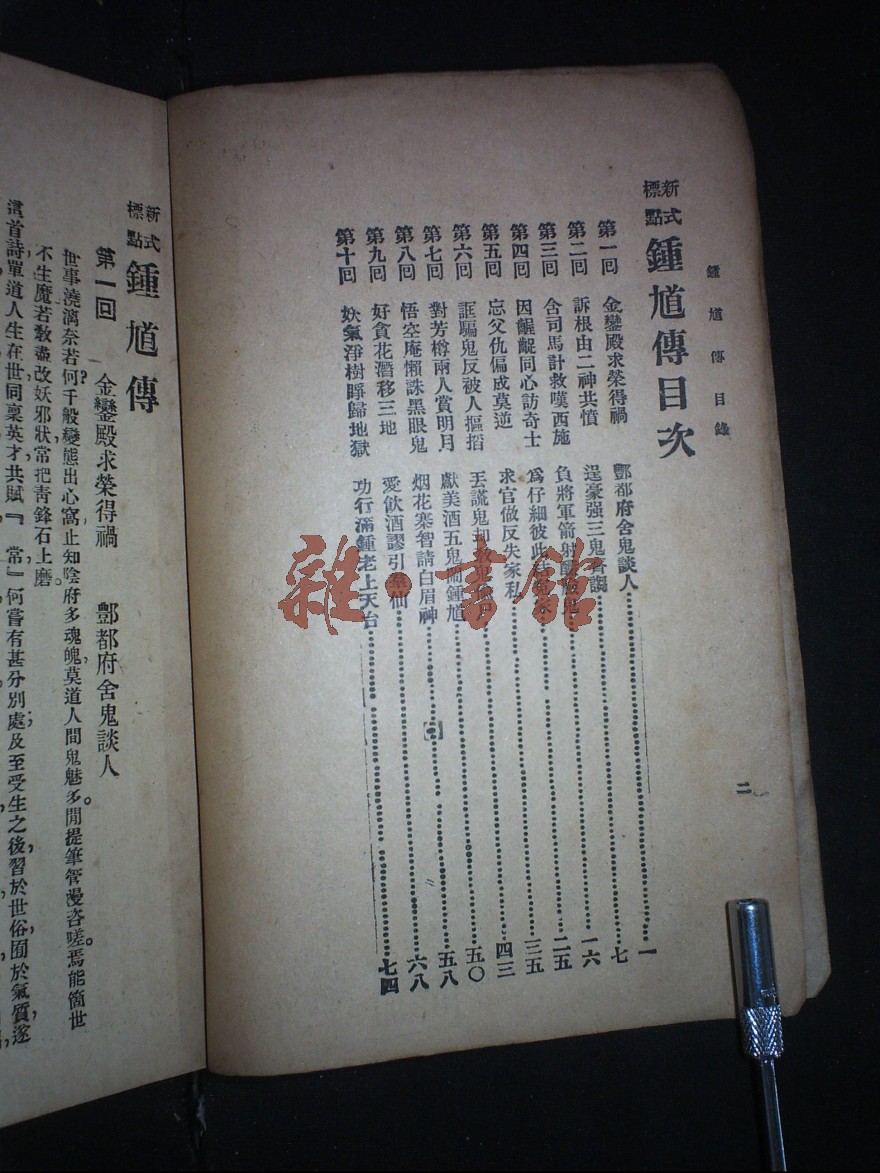 鍾馗傳目錄
二
新式標點 鍾馗傳目次
第一回 金鑾殿求榮得禍 酆都府舍鬼談人 一
第二回 訴根由二神共憤 逞豪强三鬼 七
第三回 含司馬計救嘆西施 負將軍箭射 一六
第四回 因齷齪同心訪奇士 爲仔細彼此 二五
第五回 忘父仇偏成莫逆 求官做反失家私 三五
第六回 誆騙鬼反被人摳掐 丟謊鬼却 四三
第七回 對芳樽兩人賞明月 獻美酒五鬼鬧鍾馗 五〇
第八回 悟空庵懶誅黑眼鬼 烟花寨智請白眉神 五八
第九回 好貪花潛移三地 愛飲酒謬引羣仙 六八
第十回 妖氣淨樹睜歸地獄 功行滿鍾老上天台 七四
雜·書館
新式標點 鍾馗傳
第一回 金鑾殿求榮得禍 酆都府舍鬼談人
世事澆漓奈若何?千般變態出心窩止知陰府多魂魄,莫道人間鬼魅多。閒提筆管漫咨嗟。焉能箇世
不生魔若教盡改妖邪狀,常把靑鋒石上磨。
這首詩單道人生在世,同稟英才,共賦『常』何嘗有甚分別處;及至受生之後,習於世俗,囿於氣質,遂